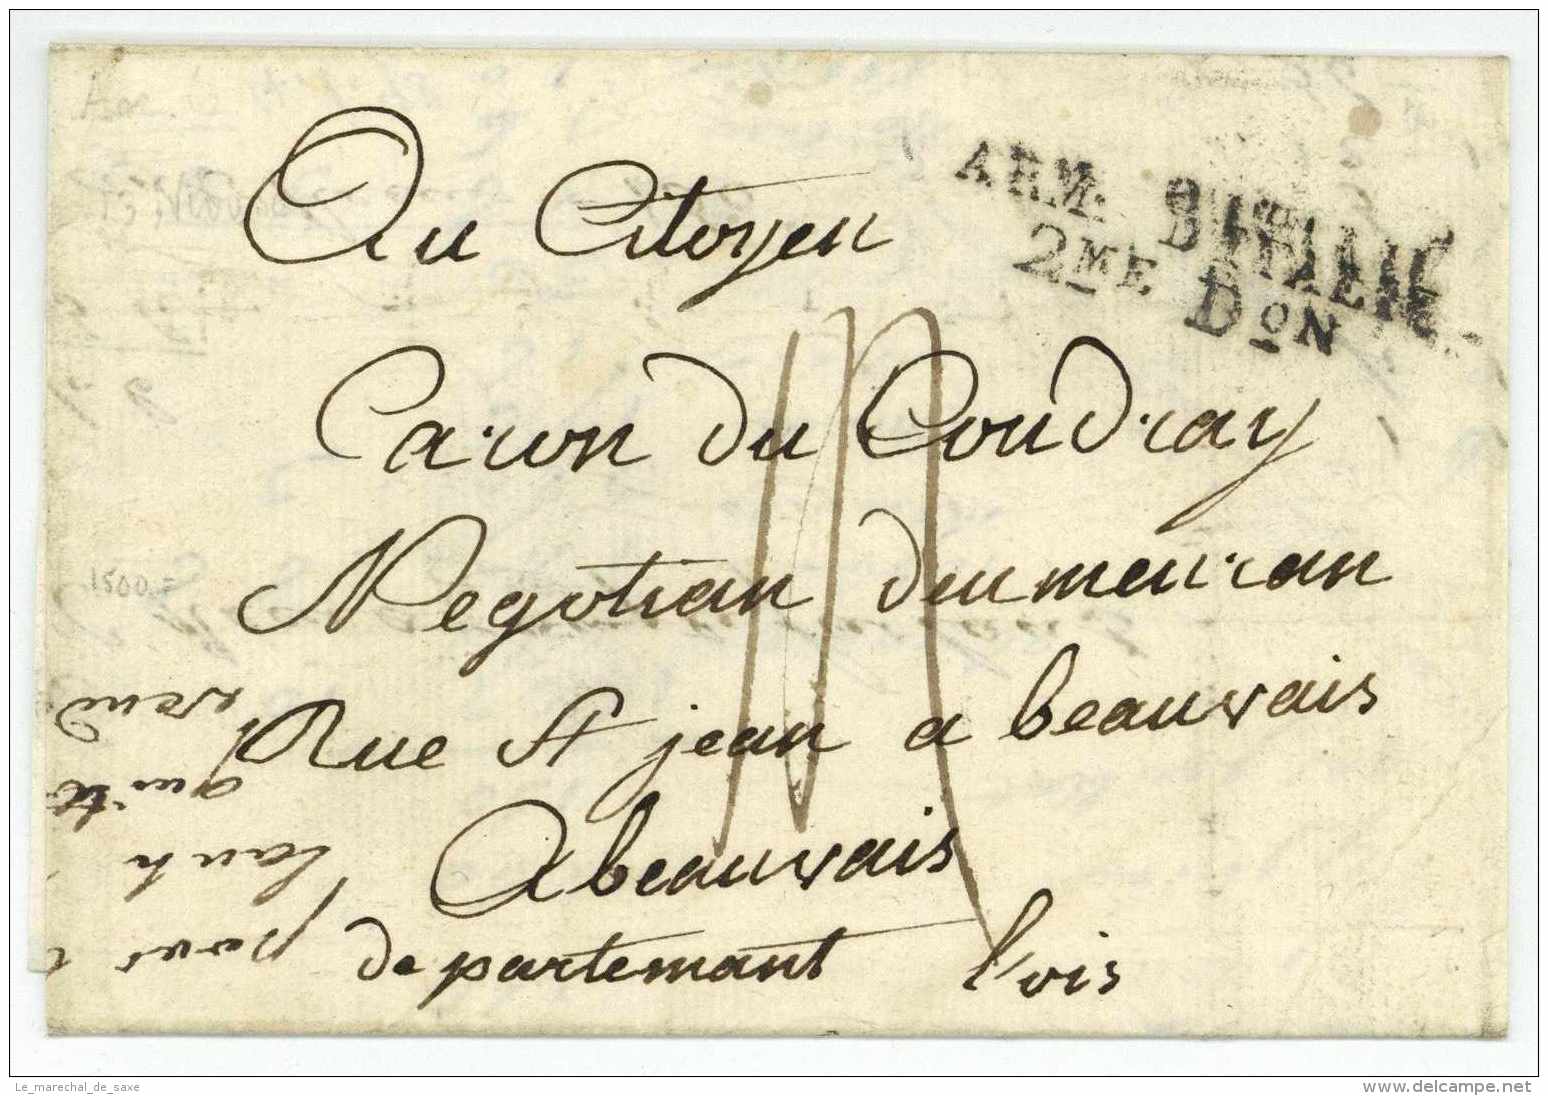 Au Citoyen
ARM. D'ITALIE
2ME Don
Caron du Coudray
Negotian deumeuran
Rue St jean a beauvais
A beauvais
departement l'ois
1500=
Le_marechal_de_saxe
www.delcampe.net